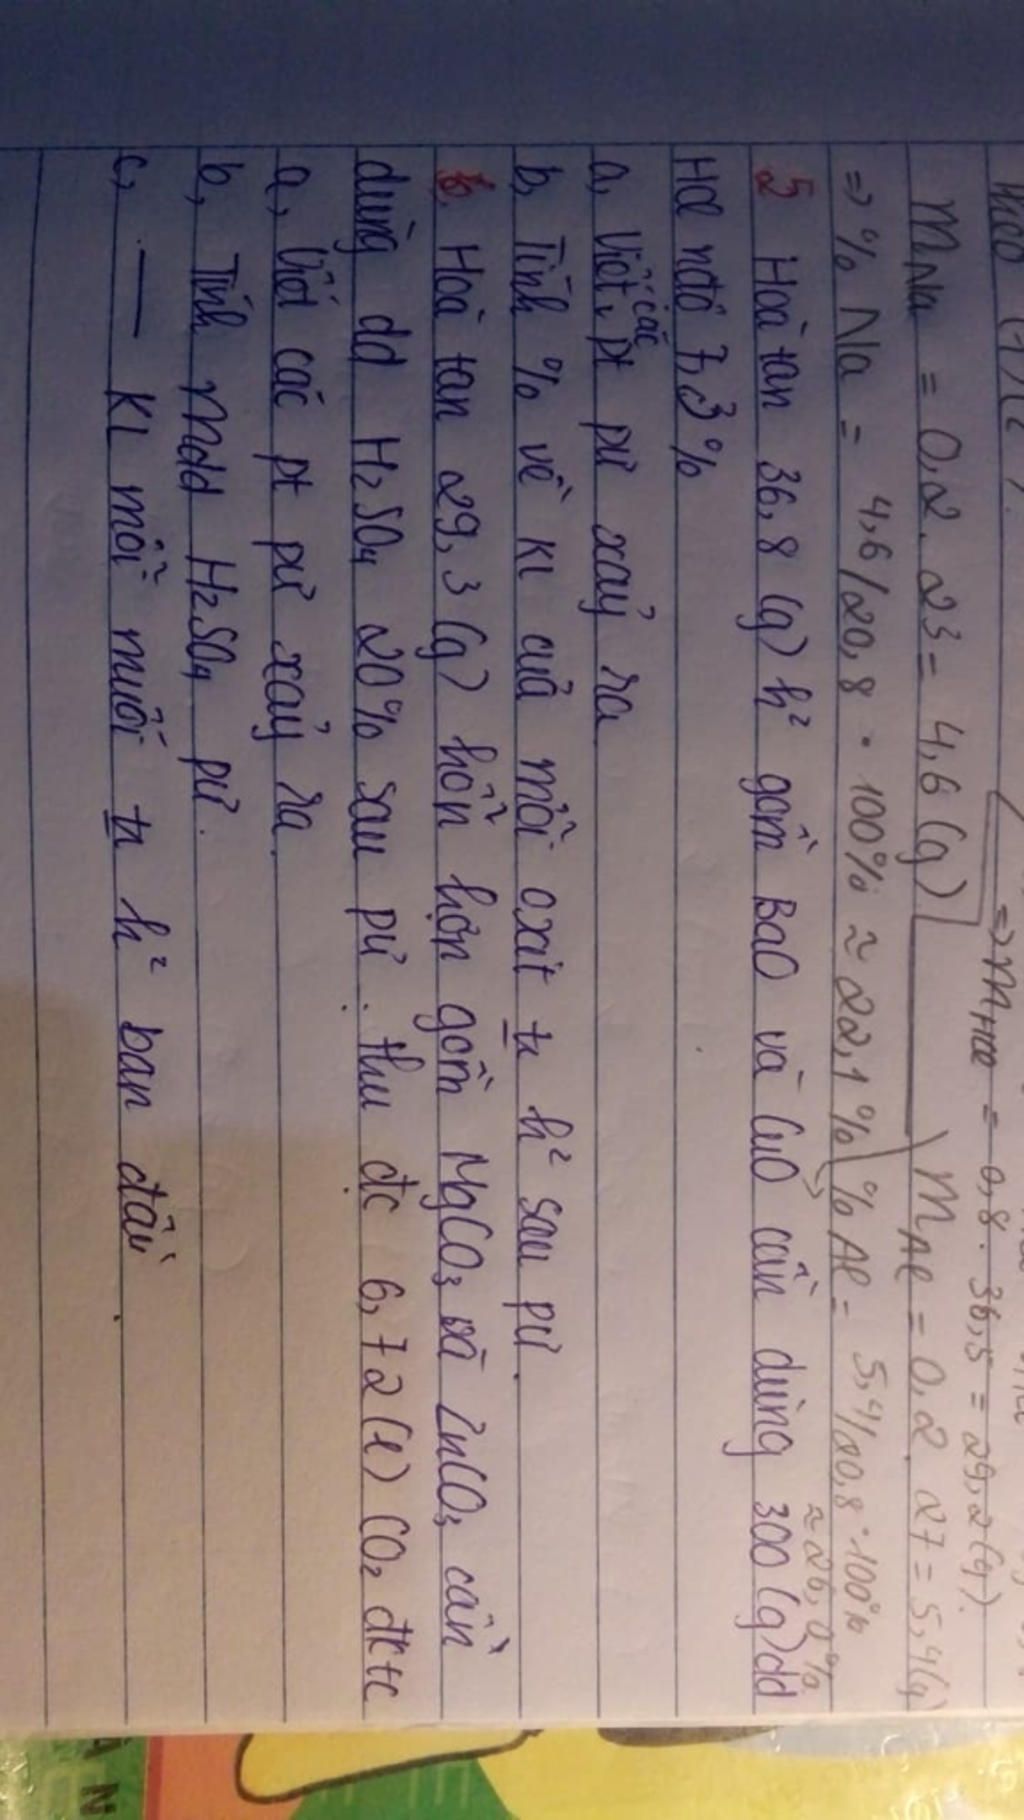 ⇒ mHCl = 0,8 . 36,5 = 29,2 (g).
mNa = 0,2 . 23 = 4,6 (g) mAl = 0,2 . 27 = 5,4 (g)
⇒ % Na = 4,6/20,8 . 100% ≈ 22,1% % Al = 5,4/20,8 . 100% ≈ 26,0%
5 Hoà tan 36,8 (g) h² gồm BaO và CuO cần dùng 300 (g) dd
HCl nđộ 7,3%
a, Viết các pt pư xảy ra
b, Tính % về kl của mỗi oxit tr h² sau pư.
6, Hoà tan 29,3 (g) hỗn hợp gồm MgCO₃ và ZnCO₃ cần
dùng dd H₂SO₄ 20% sau pư. thu đc 6,72 (l) CO₂ đktc
a, Viết các pt pư xảy ra.
b, Tính mdd H₂SO₄ pư.
c, — kl mỗi muối tr h² ban đầu.
ÂN